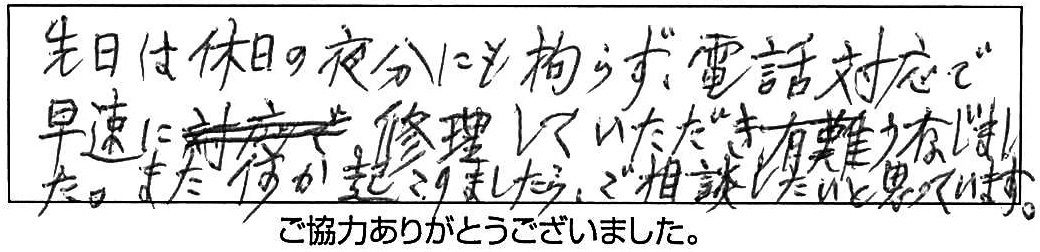 先日は休日の夜分にも拘らず、電話対応で
早速に対応で修理していただき有難うねじまし
た。また何か起こりましたら、ご相談したいと思っています。
ご協力ありがとうございました。